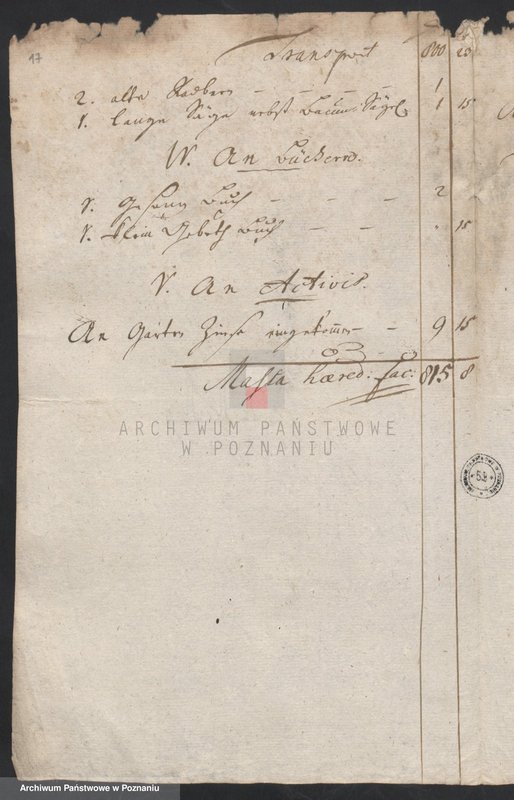 17
Transport 800 23
2. alte Radbern - - - - 1
1. lange Säge nebst Baum Sägel 1 15
IV. An Büchern.
1. Gesang Buch - - - - 2
1. klein Gebeth Buch - - - " 15
V. An Activis.
An Garten Zinse eingekommen - - 9 15
Massa hæred: fac: 815 8
ARCHIWUM PAŃSTWOWE
W POZNANIU
53
Archiwum Państwowe w Poznaniu